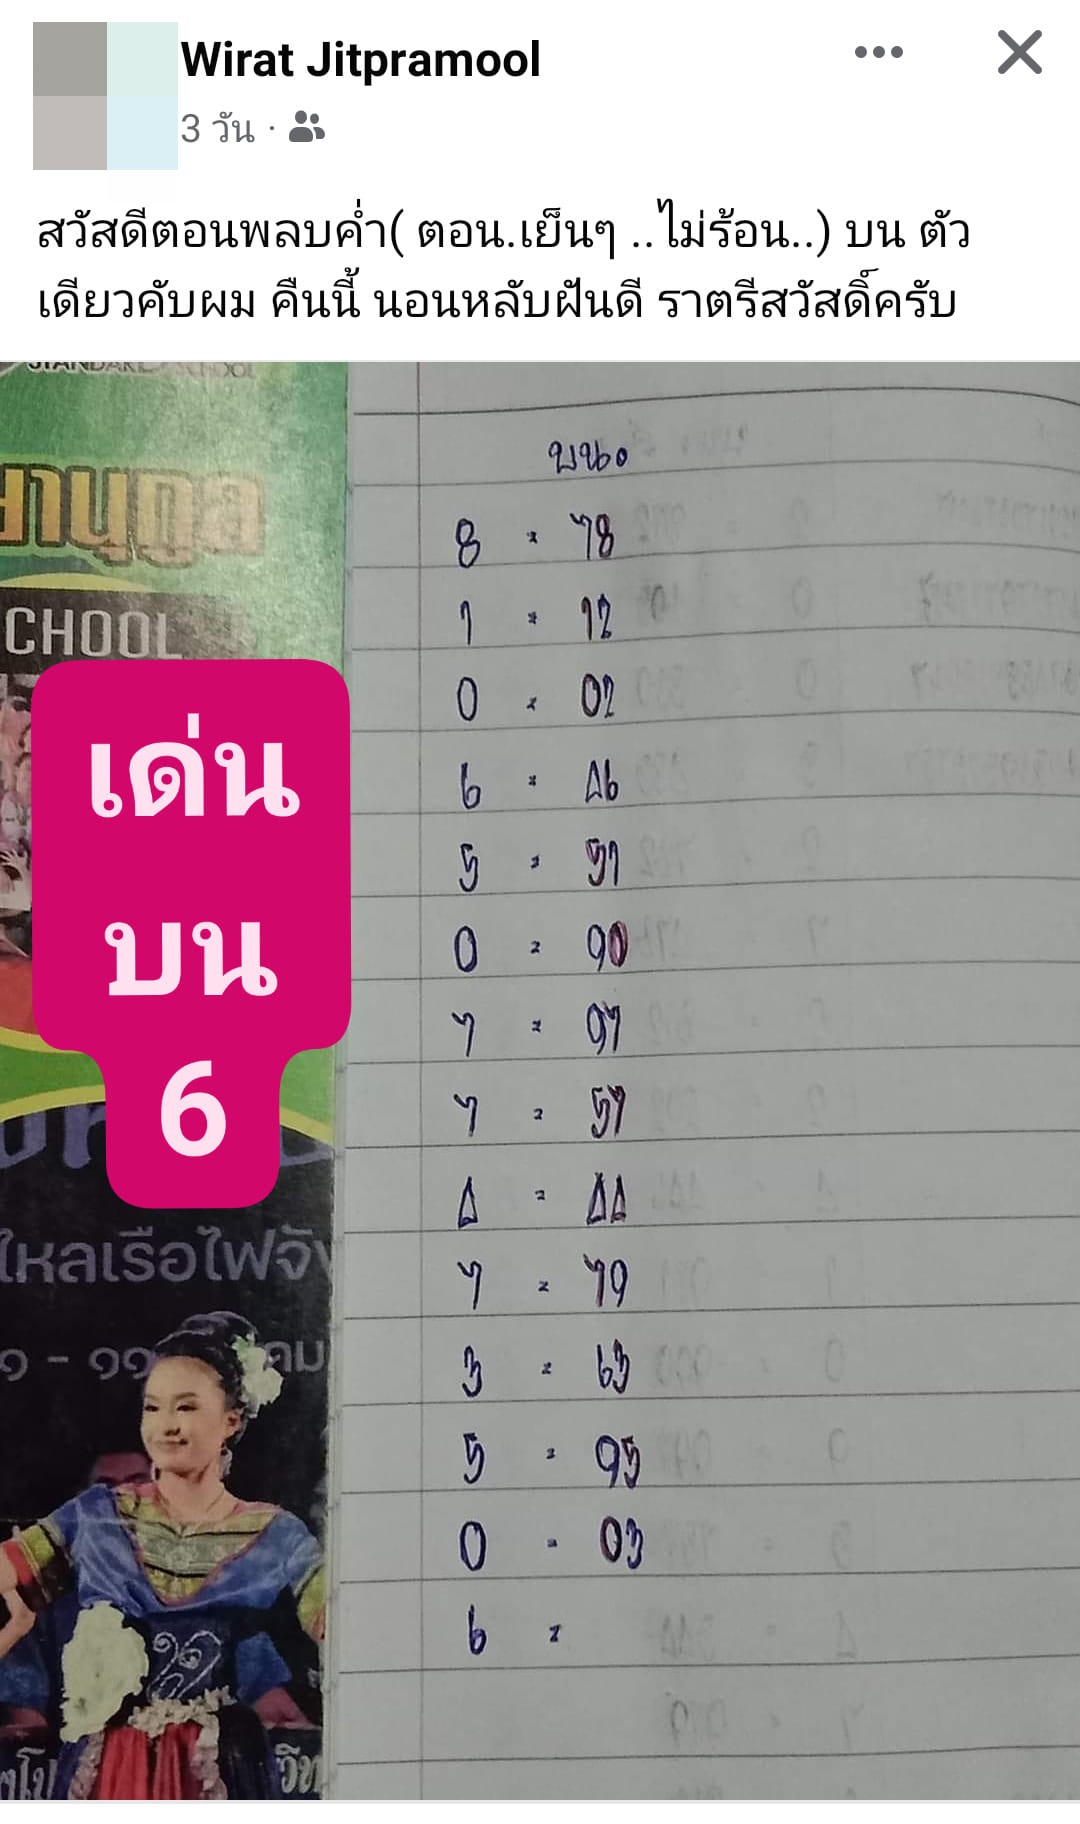 Wirat Jitpramool
3 วัน
สวัสดีตอนพลบค่ำ( ตอน.เย็นๆ ..ไม่ร้อน..) บน ตัว
เดียวคับผม คืนนี้ นอนหลับฝันดี ราตรีสวัสดิ์ครับ
STANDARD SCHOOL
ยานุกูล
CHOOL
เด่น
บน
6
ไหลเรือไฟจั
๑ - ๑๑
คม
บน๐
8 = 78
1 = 12
0 = 02
6 = 46
5 = 51
0 = 90
7 = 97
7 = 57
4 = 44
7 = 79
3 = 63
5 = 95
0 = 03
6 =